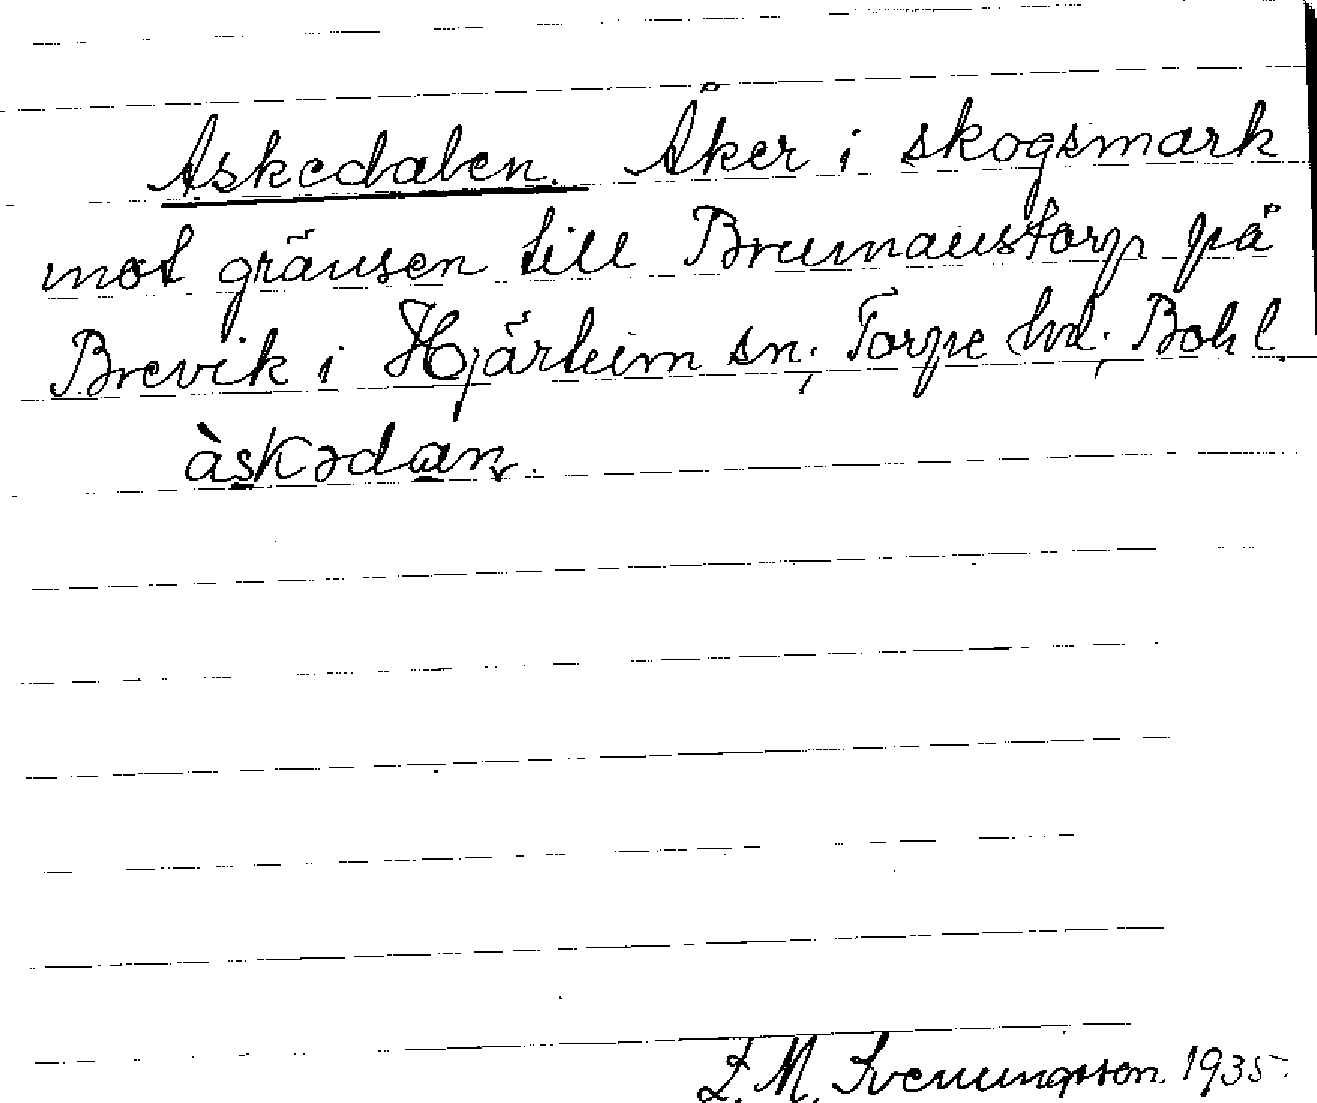 Askedalen. Åker i skogsmark
mot gränsen till Brunnanstorp på
Brevik i Hjärteim sn; Torpe hd; Bohl.
àskədan.
L. M. Svenungsson 1935.